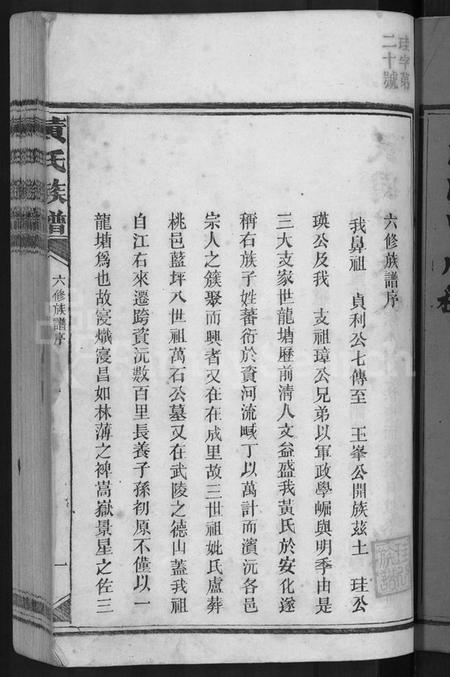 珪字第
二十號
六修族譜序
我鼻祖　貞利公七傳至　玉峯公開族茲土　珪公
瑛公及我　支祖璋公兄弟以軍政學崛與明季由是
三大支家世龍塘歷前清人文益盛我黃氏於安化遂
稱右族子姓蕃衍於資河流域丁以萬計而濱沅各邑
宗人之簇聚而興者又在在成里故三世祖妣氏盧葬
桃邑藍坪八世祖萬石公墓又在武陵之德山蓋我祖
自江右來遷跨資沅數百里長養子孫初原不僅以一
龍塘為也故寖熾寖昌如林薄之裨嵩嶽景星之佐三
黃氏族譜
六修族譜序
一